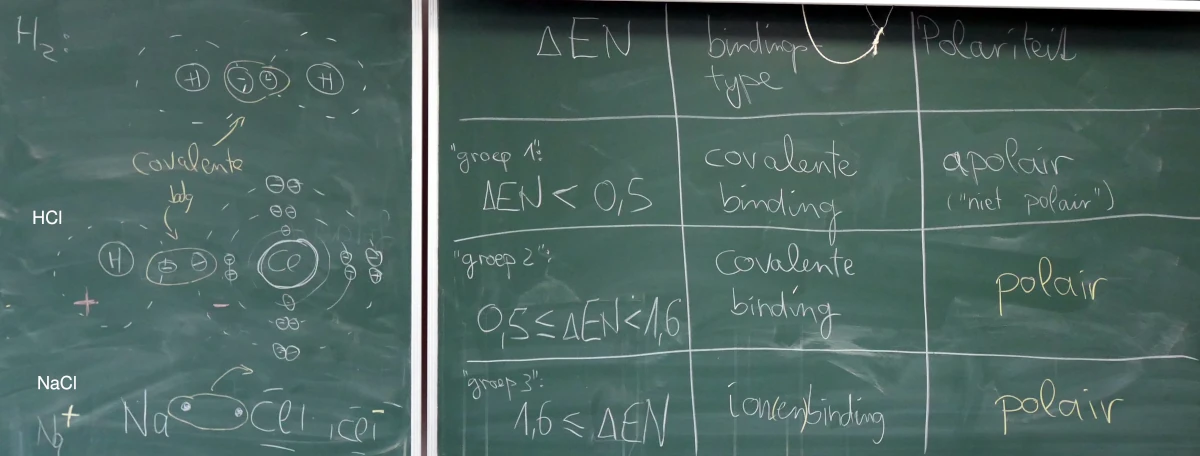 H₂:
H - - H
Covalente
bdg
HCl
H - - Cl
+ -
NaCl
Na⁺ Na Cl Cl⁻
ΔEN
bindings-
type
Polariteit
"groep 1":
ΔEN < 0,5
covalente
binding
apolair
("niet polair")
"groep 2":
0,5 ≤ ΔEN < 1,6
Covalente
binding
polair
"groep 3":
1,6 ≤ ΔEN
ionenbinding
polair